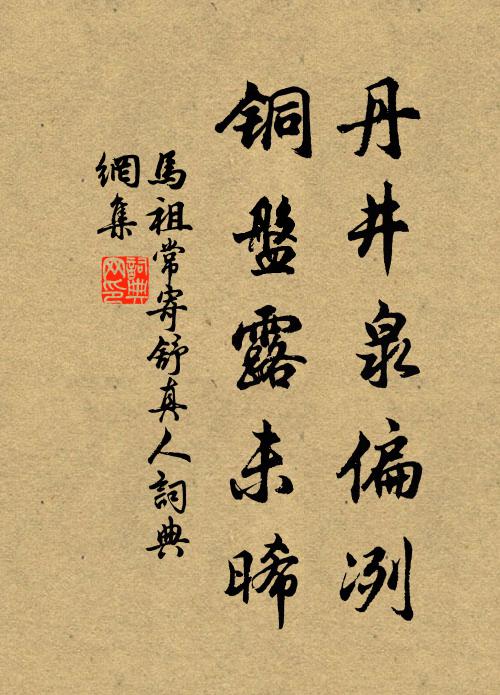 丹井泉偏冽
铜盤露未晞
馬祖常寄舒真人詞典
網集
詞典网印